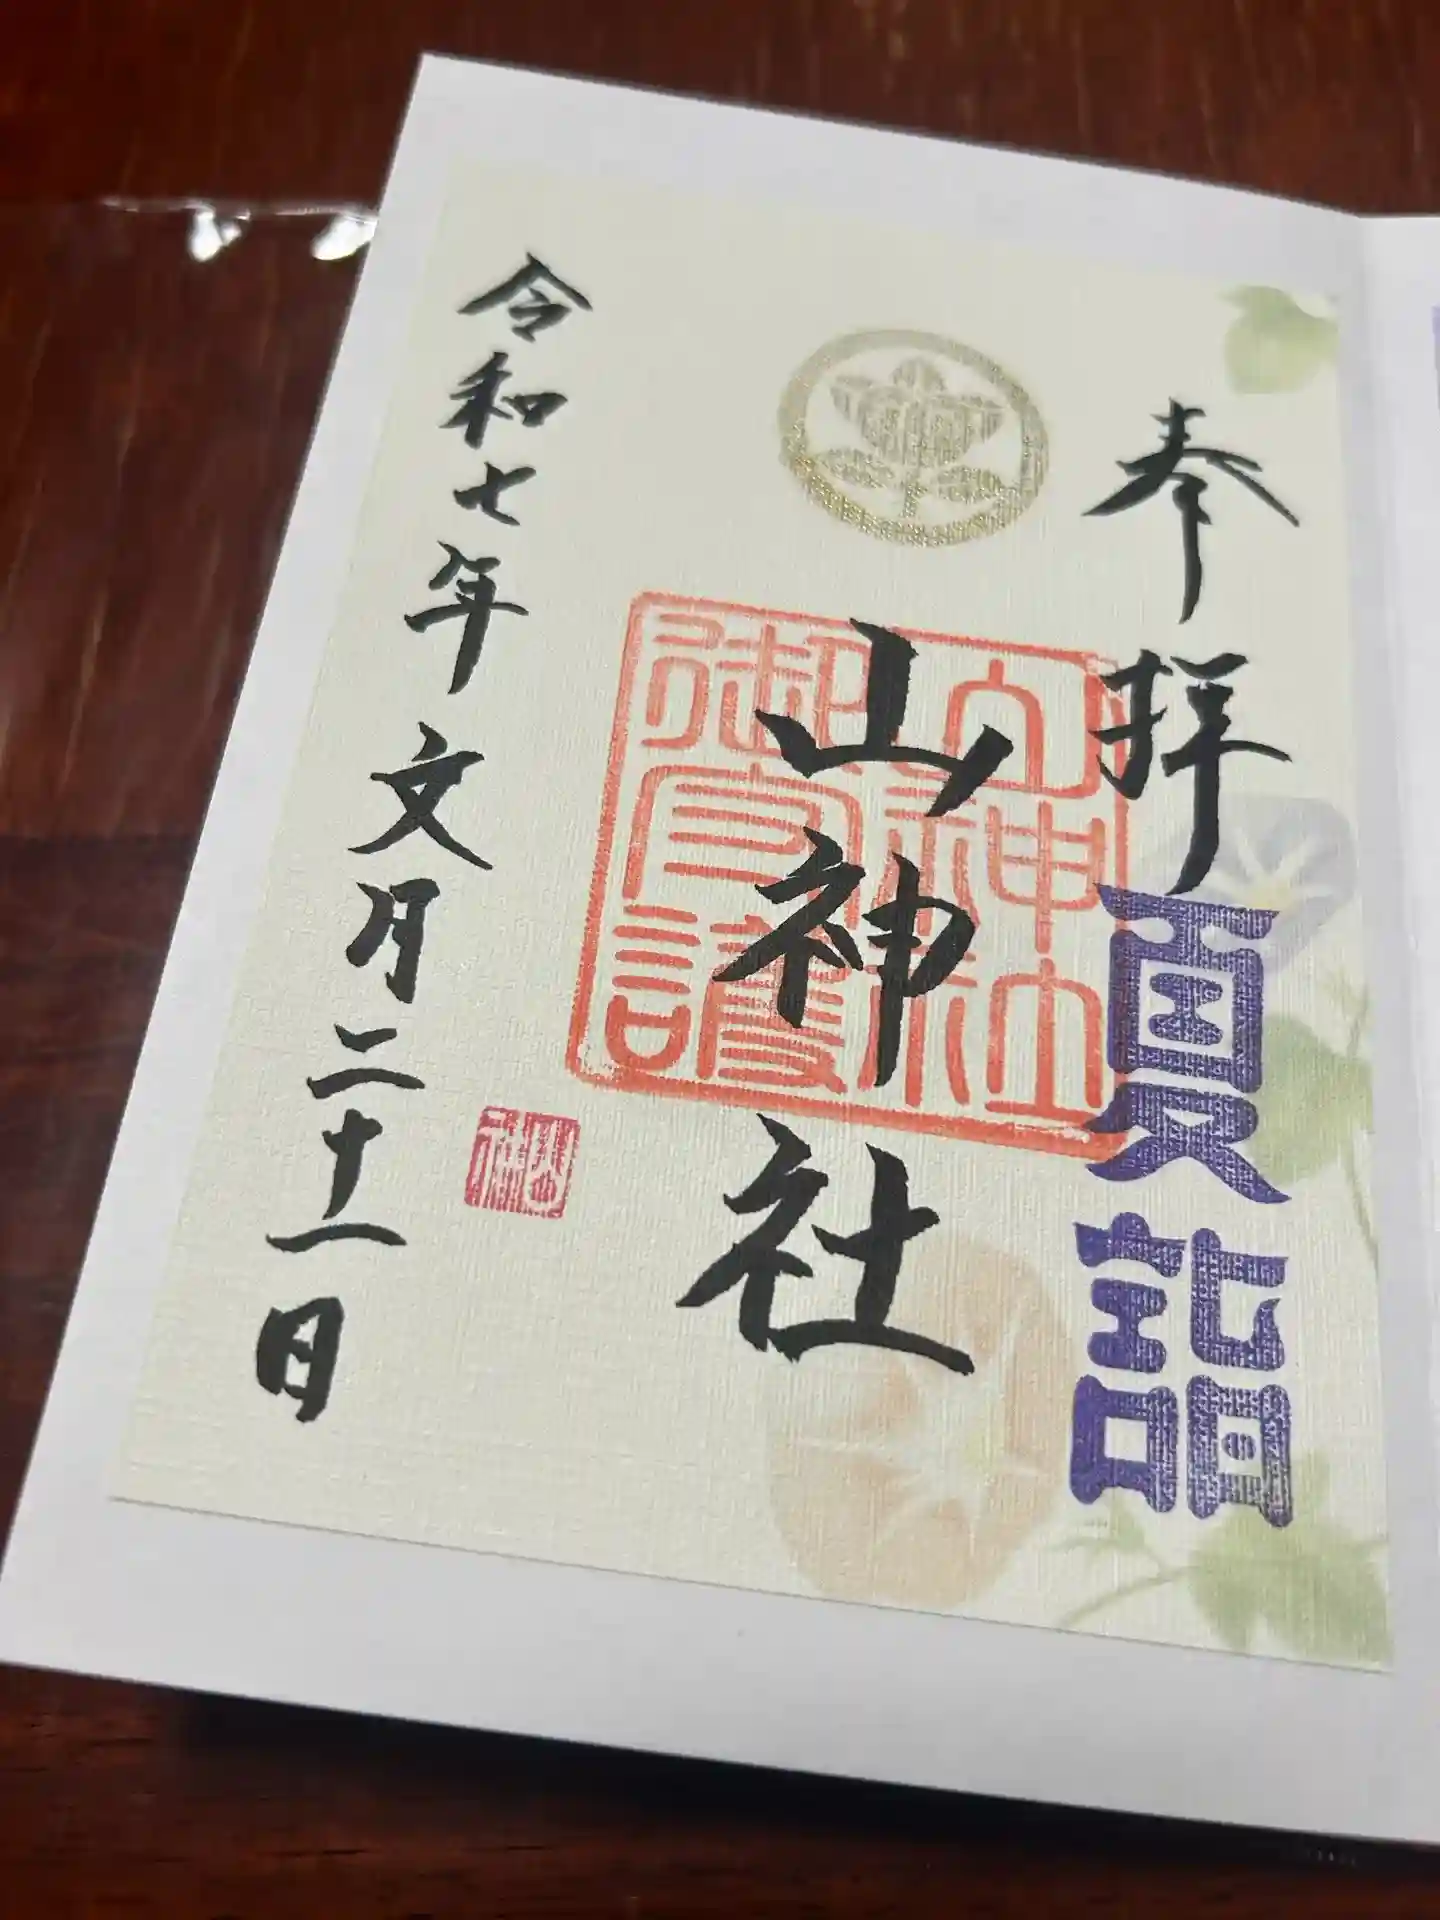 奉拝
夏詣
山神社
山神社
御守護
令和七年文月二十一日